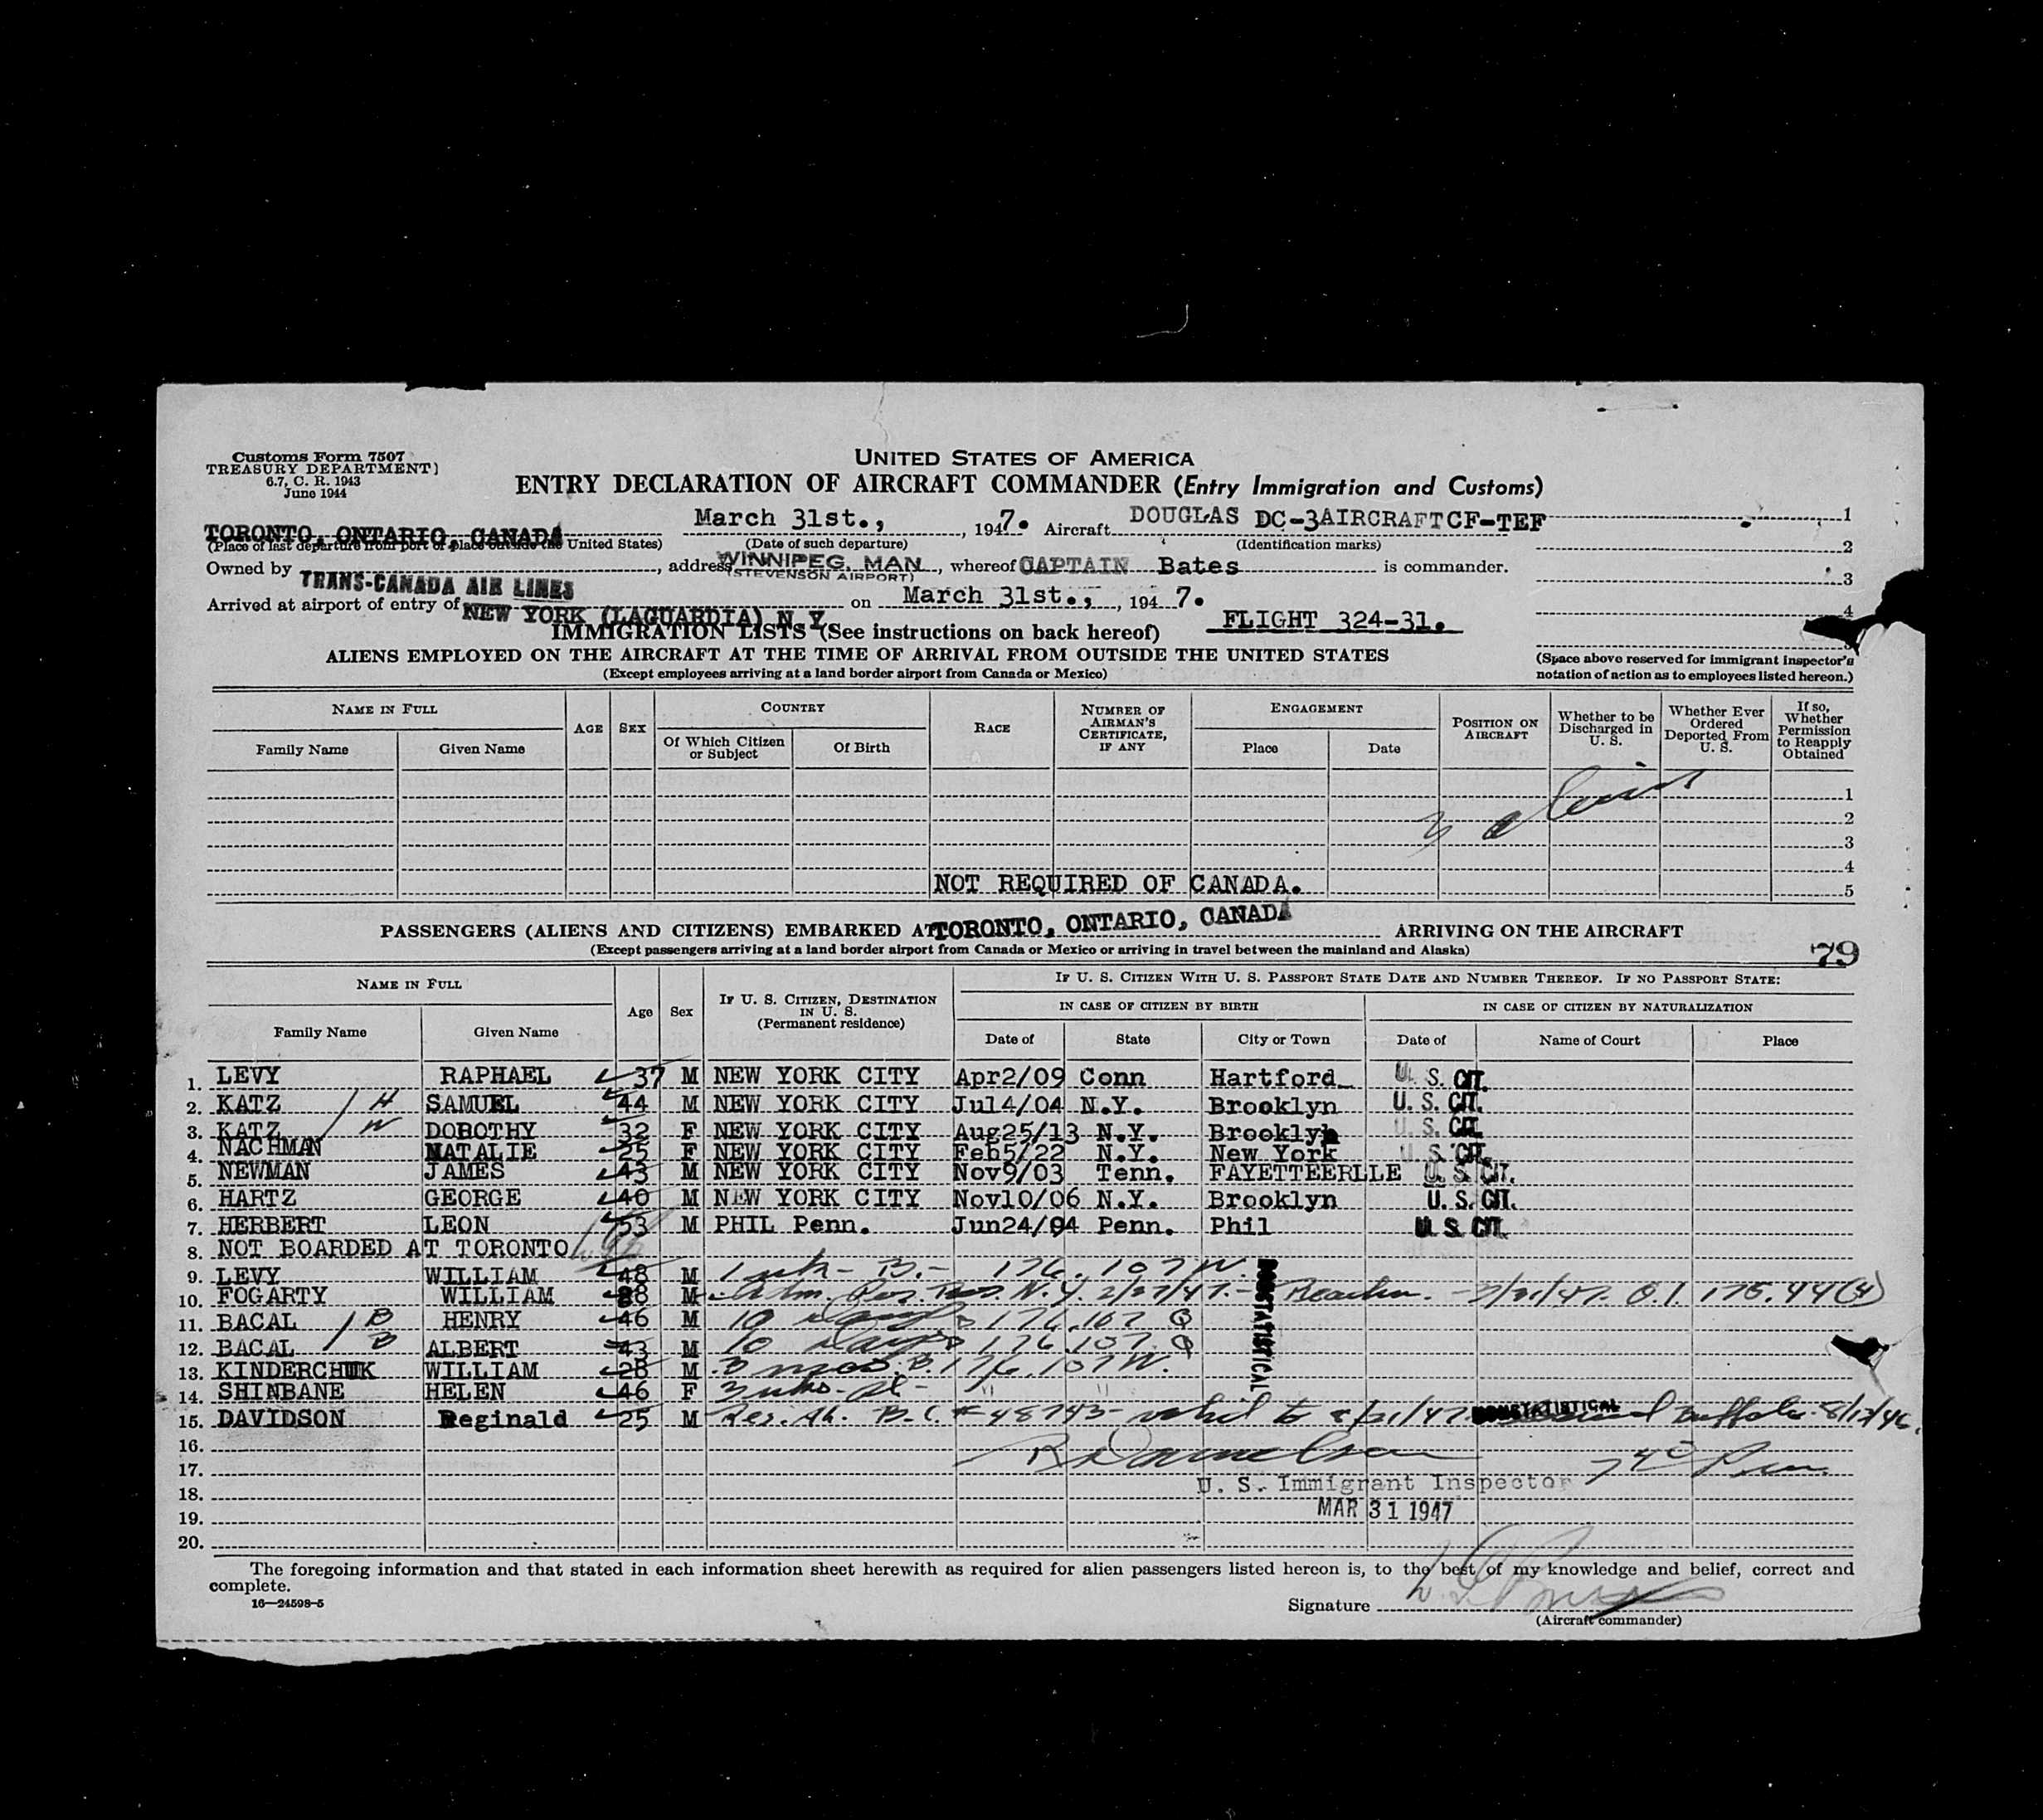 Customs Form 7507
TREASURY DEPARTMENT)
6.7, C. R. 1943
June 1944
UNITED STATES OF AMERICA
ENTRY DECLARATION OF AIRCRAFT COMMANDER (Entry Immigration and Customs)
TORONTO, ONTARIO, CANADA March 31st., , 1947. Aircraft DOUGLAS DC-3AIRCRAFTCF-TEF 1
(Place of last departure from port or place outside the United States) (Date of such departure) (Identification marks) 2
Owned by TRANS-CANADA AIR LINES , address WINNIPEG, MAN (STEVENSON AIRPORT) , whereof CAPTAIN Bates is commander. 3
Arrived at airport of entry of NEW YORK (LAGUARDIA) N.Y. on March 31st., , 1947. 4
IMMIGRATION LISTS (See instructions on back hereof) FLIGHT 324-31.
ALIENS EMPLOYED ON THE AIRCRAFT AT THE TIME OF ARRIVAL FROM OUTSIDE THE UNITED STATES
(Except employees arriving at a land border airport from Canada or Mexico)
(Space above reserved for immigrant inspector's
notation of action as to employees listed hereon.)
NAME IN FULL
Family Name Given Name
AGE SEX
COUNTRY
Of Which Citizen or Subject Of Birth
RACE
NUMBER OF AIRMAN'S CERTIFICATE, IF ANY
ENGAGEMENT
Place Date
POSITION ON AIRCRAFT
Whether to be Discharged in U. S.
Whether Ever Ordered Deported From U. S.
If so, Whether Permission to Reapply Obtained
1
2
3
4
NOT REQUIRED OF CANADA. 5
PASSENGERS (ALIENS AND CITIZENS) EMBARKED AT TORONTO, ONTARIO, CANADA ARRIVING ON THE AIRCRAFT
(Except passengers arriving at a land border airport from Canada or Mexico or arriving in travel between the mainland and Alaska)
79
NAME IN FULL
Family Name Given Name
Age Sex
IF U. S. CITIZEN, DESTINATION IN U. S. (Permanent residence)
IF U. S. CITIZEN WITH U. S. PASSPORT STATE DATE AND NUMBER THEREOF. IF NO PASSPORT STATE:
IN CASE OF CITIZEN BY BIRTH IN CASE OF CITIZEN BY NATURALIZATION
Date of State City or Town Date of Name of Court Place
1. LEVY RAPHAEL 37 M NEW YORK CITY Apr2/09 Conn Hartford U. S. CIT.
2. KATZ H SAMUEL 44 M NEW YORK CITY Jul4/04 N.Y. Brooklyn U. S. CIT.
3. KATZ W DOROTHY 32 F NEW YORK CITY Aug25/13 N.Y. Brooklyn U. S. CIT.
4. NACHMAN NATALIE 25 F NEW YORK CITY Feb5/22 N.Y. New York U. S. CIT.
5. NEWMAN JAMES 43 M NEW YORK CITY Nov9/03 Tenn. FAYETTEERLLE U. S. CIT.
6. HARTZ GEORGE 40 M NEW YORK CITY Nov10/06 N.Y. Brooklyn U. S. CIT.
7. HERBERT LEON 53 M PHIL Penn. Jun24/94 Penn. Phil U. S. CIT.
8. NOT BOARDED AT TORONTO
9. LEVY WILLIAM 48 M 1 wk - B. - 176.107 W.
10. FOGARTY WILLIAM 28 M N.Y. 2/27/47. - 3/31/47. 175.44
11. BACAL B HENRY 46 M 10 days 176.107 Q
12. BACAL B ALBERT 43 M 10 days 176.107 Q
13. KINDERCHUK WILLIAM 28 M 3 mos. B. 176.107 W.
14. SHINBANE HELEN 46 F 3 " "
NONSTATISTICAL
15. DAVIDSON Reginald 25 M B.C. #48743 valid to NONSTATISTICAL Buffalo 8/13/46.
16.
17. 7 40 Pm.
U. S. Immigrant Inspector
18. MAR 31 1947
19.
20.
The foregoing information and that stated in each information sheet herewith as required for alien passengers listed hereon is, to the best of my knowledge and belief, correct and
complete.
16—24598-5
Signature
(Aircraft commander)